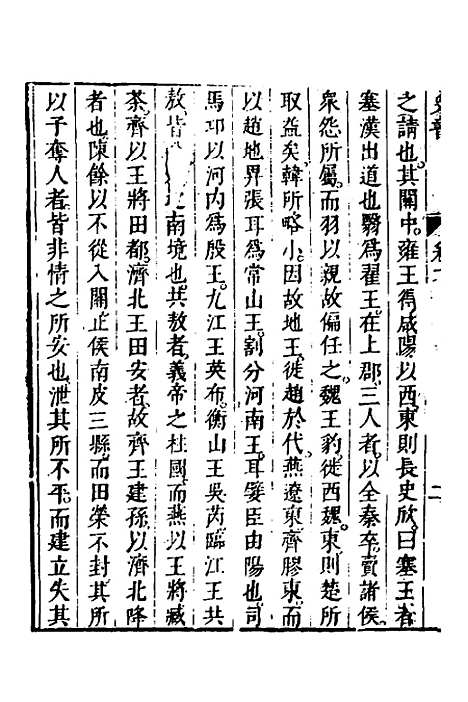 之請也其關中雍王得咸陽以西東則長史欣曰塞王者
塞漢出道也翳爲翟王在上郡三人者以全秦卒賣諸侯
衆怨所屬而羽以親故偏任之魏王豹徙西魏東則楚所
取益矣韓所略小因故地王徙趙於代燕遼東齊膠東而
以趙地畀張耳爲常山王割分河南王耳嬖臣申陽也司
馬卭以河内爲殷王九江王英布衡山王吳芮臨江王共
敖皆 南境也共敖者義帝之柱國而燕以王將臧
荼齊以王將田都濟北王田安者故齊王建孫以濟北降
者也陳餘以不從入關止侯南皮三縣而田榮不封其所
以子奪人者皆非情之所安也泄其所不平而建立失其